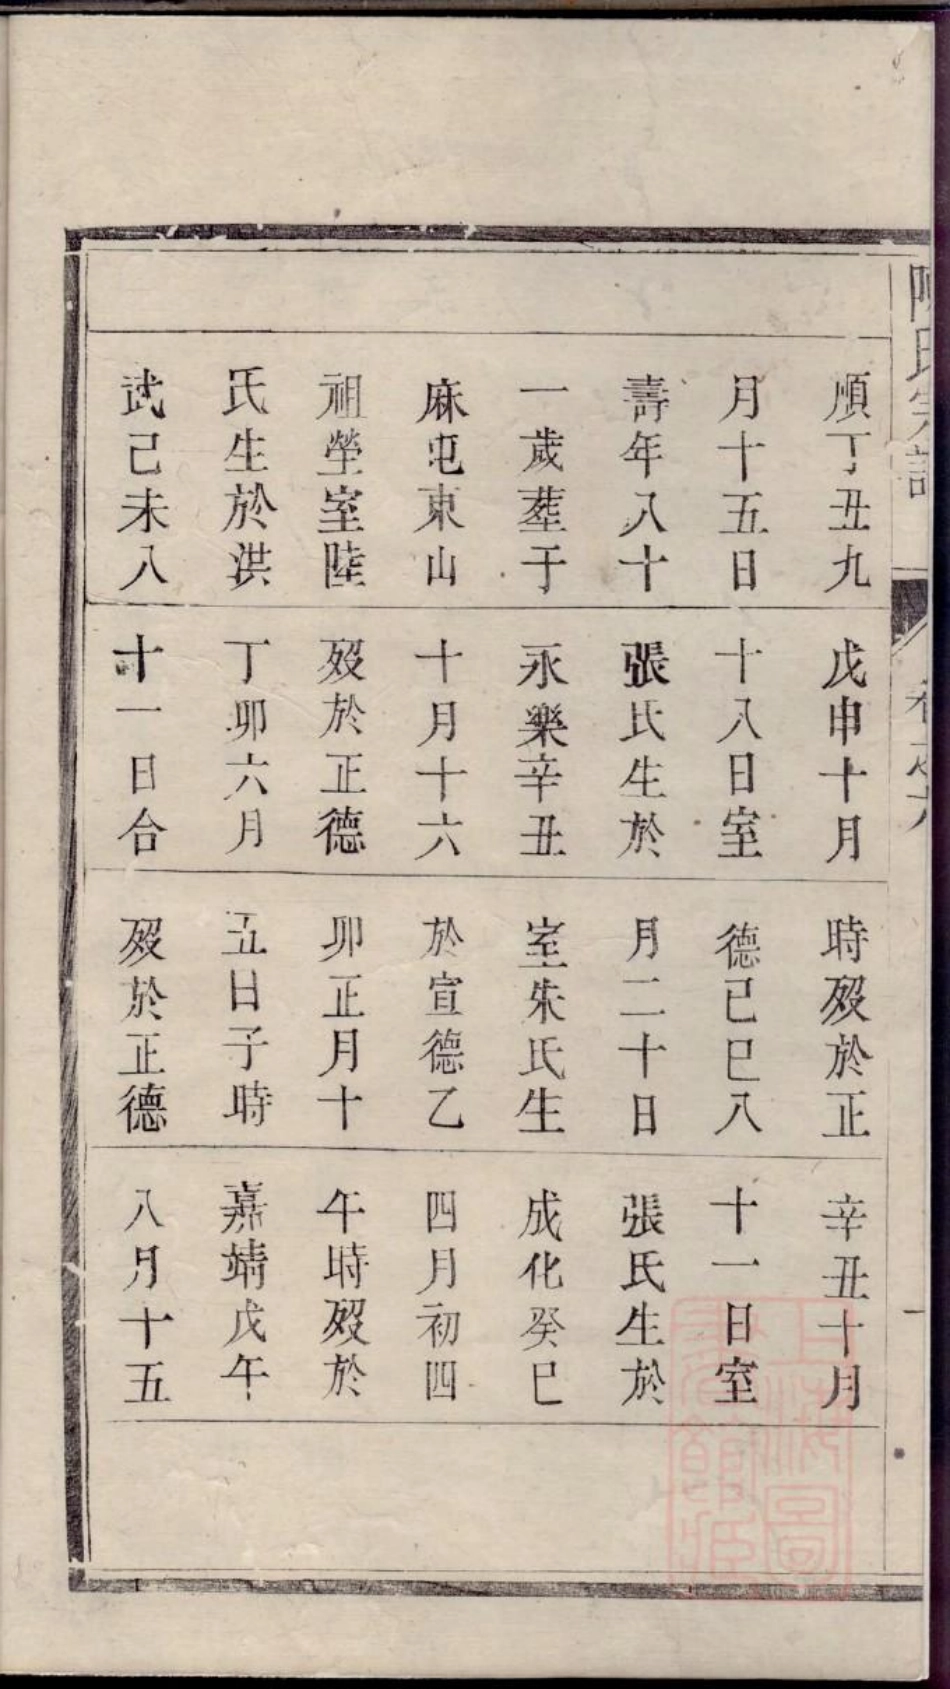 順丁丑九
月十五日
壽年八十
一歲塟于
麻屯東山
祖塋室陸
氏生於洪
武己未八
戊申十月
十八日室
張氏生於
永樂辛丑
十月十六
歿於正德
丁卯六月
十一日合
時歿於正
德己巳八
月二十日
室朱氏生
於宣德乙
卯正月十
五日子時
歿於正德
辛丑十月
十一日室
張氏生於
成化癸巳
四月初四
午時歿於
嘉靖戊午
八月十五